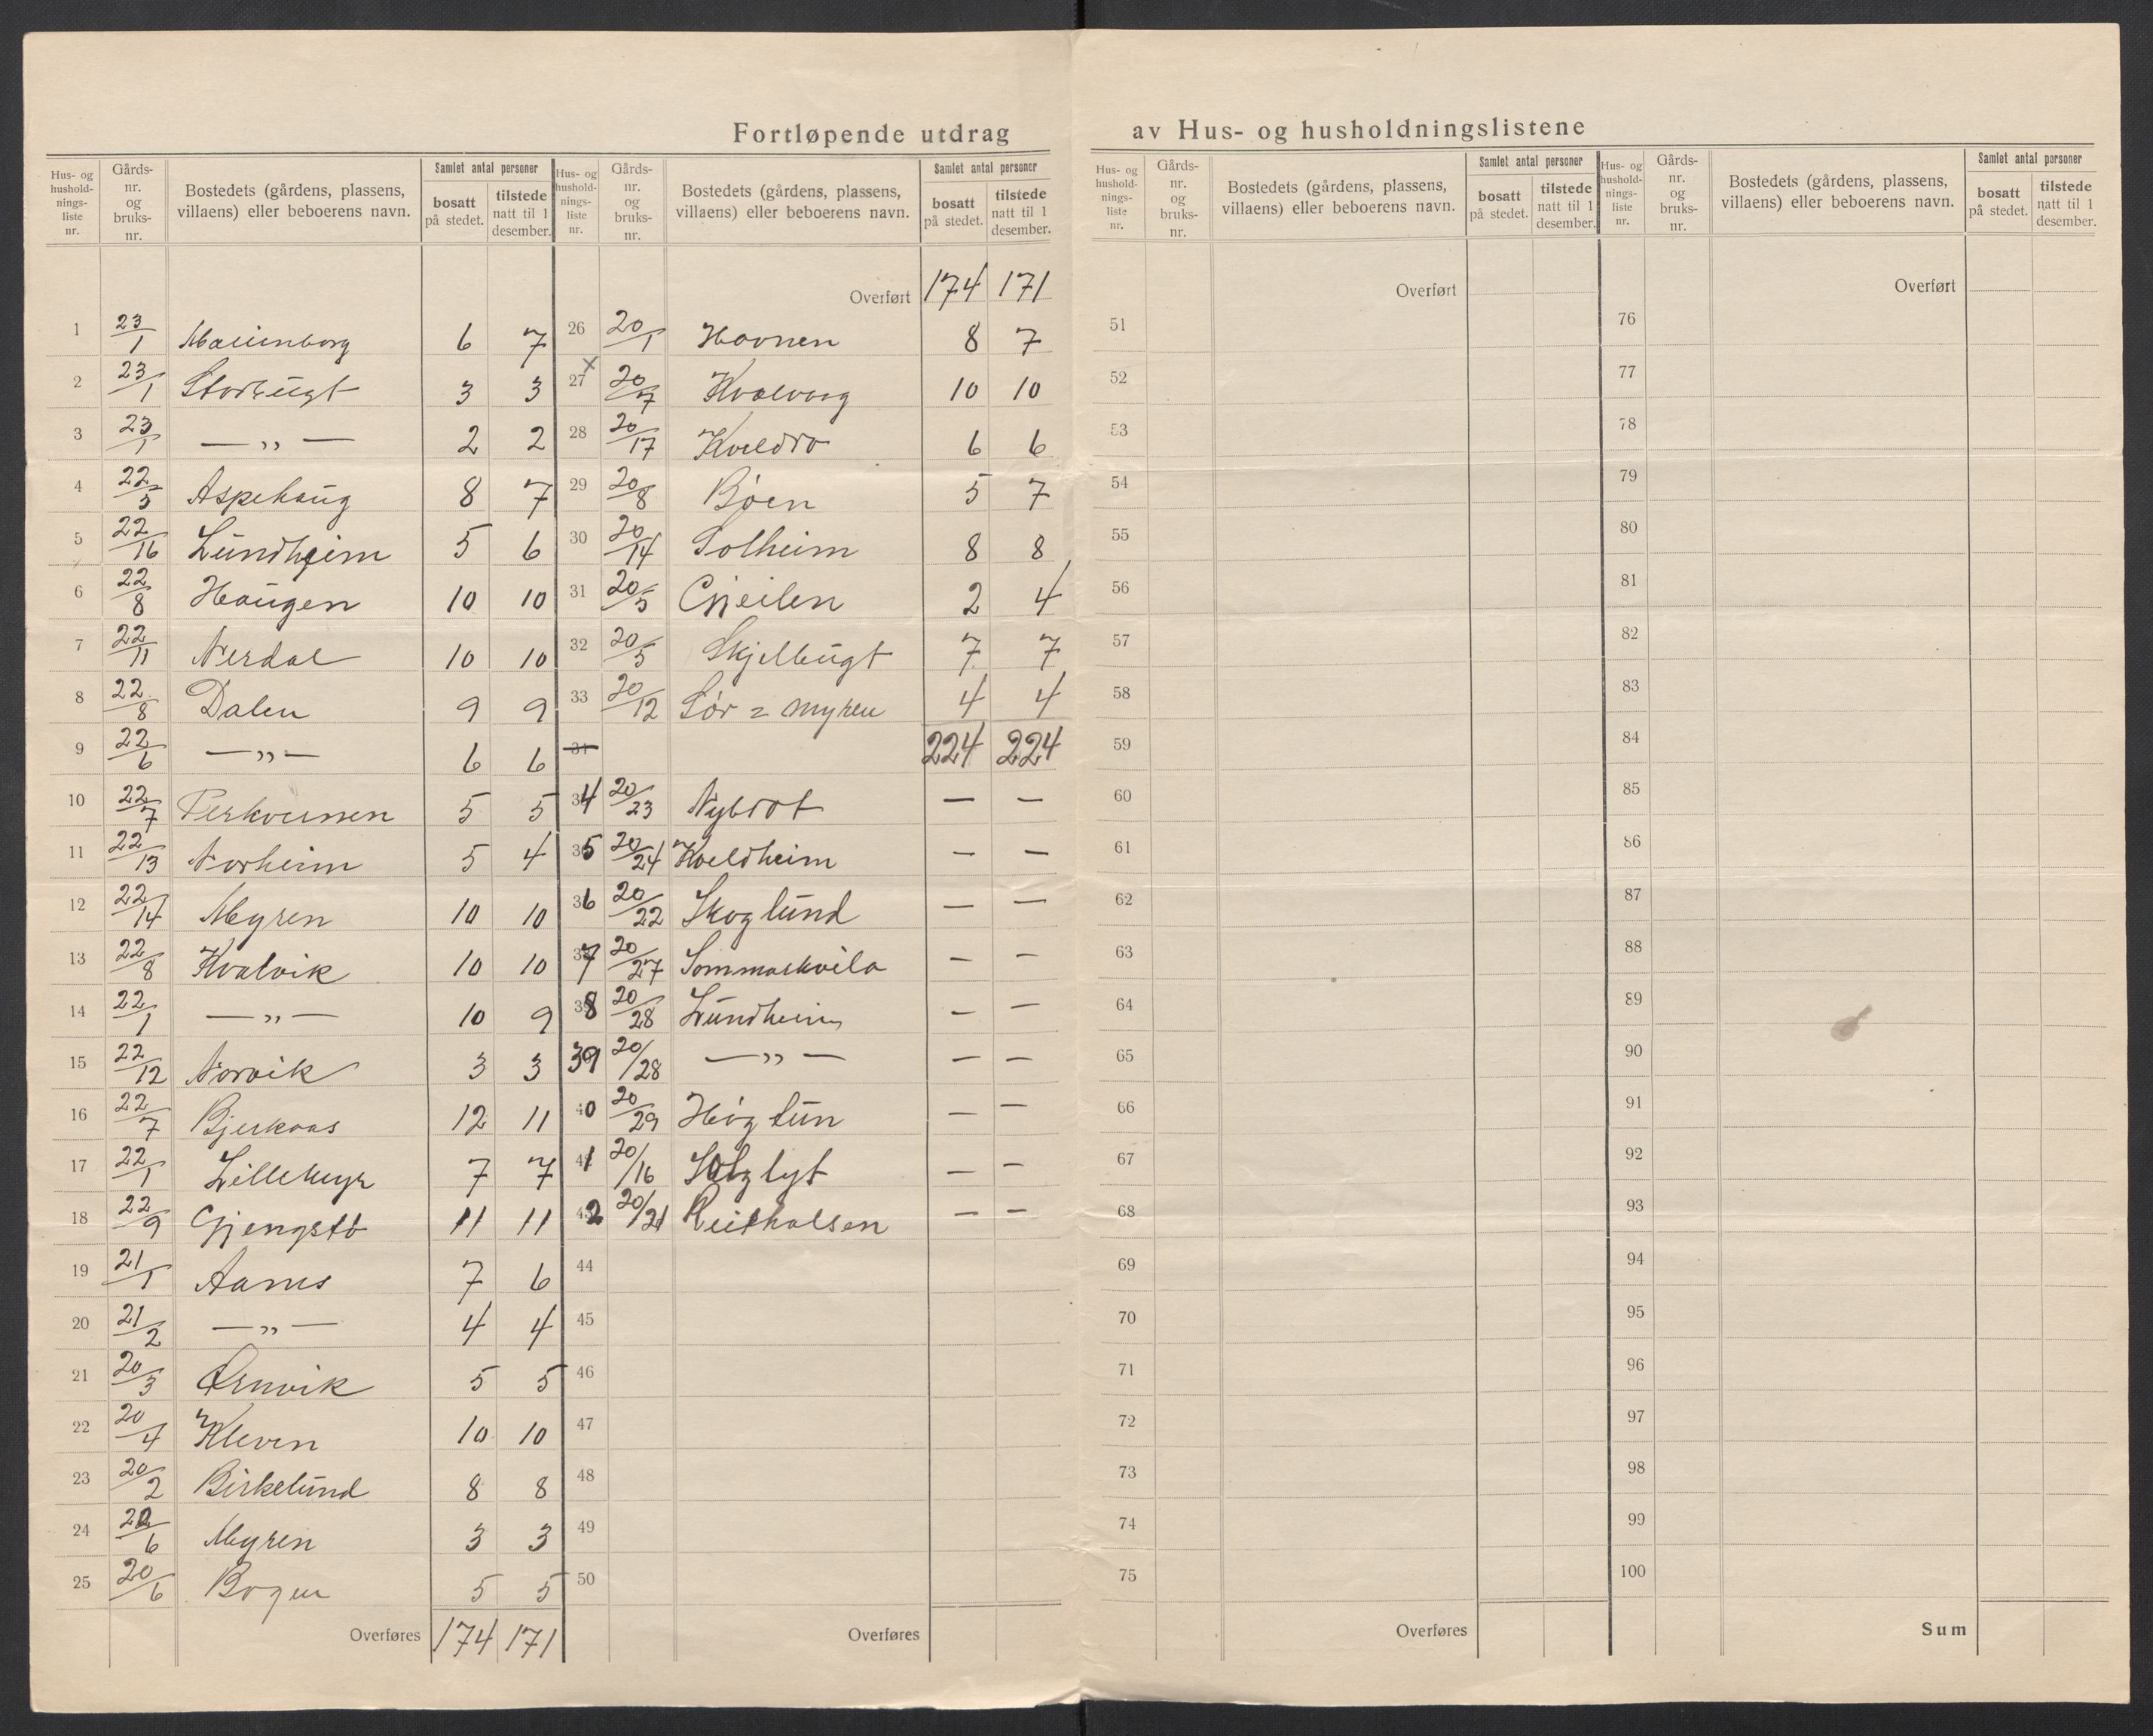 Fortløpende utdrag av Hus- og husholdningslistene
Hus- og hushold-nings-liste nr. | Gårds-nr. og bruks-nr. | Bostedets (gårdens, plassens, villaens) eller beboerens navn. | Samlet antal personer | bosatt på stedet. | tilstede natt til 1 desember.
1 23/1 Marienborg 6 7
2 23/1 Storbugt 3 3
3 23/1 — „ — 2 2
4 22/5 Aspehaug 8 7
5 22/16 Lundheim 5 6
6 22/8 Haugen 10 10
7 22/11 Nerdal 10 10
8 22/8 Dalen 9 9
9 22/6 — „ — 6 6
10 22/7 5 5
11 22/13 Norheim 5 4
12 22/14 Myren 10 10
13 22/8 Kvalvik 10 10
14 22/1 — „ — 10 9
15 22/12 Norvik 3 3
16 22/7 Bjerkaas 12 11
17 22/1 Lillemyr 7 7
18 22/9 Gjengstø 11 11
19 21/1 Aanes 7 6
20 21/2 — „ — 4 4
21 20/3 Ørnvik 5 5
22 20/4 Kleven 10 10
23 20/2 Birkelund 8 8
24 20/6 Myren 3 3
25 20/6 Bogen 5 5
Overføres 174 171
Hus- og hushold-nings-liste nr. | Gårds-nr. og bruks-nr. | Bostedets (gårdens, plassens, villaens) eller beboerens navn. | Samlet antal personer | bosatt på stedet. | tilstede natt til 1 desember.
Overført 174 171
26 20/1 Havnen 8 7
27 x 20/7 Kvalvaag 10 10
28 20/17 Kveldro 6 6
29 20/8 Bøen 5 7
30 20/14 Solheim 8 8
31 20/5 Gjeilen 2 4
32 20/5 Skjelbugt 7 7
33 20/12 Sør = myren 4 4
34 224 224
34 20/23 Nybrot — —
35 20/24 Kveldheim — —
36 20/22 Skoglund — —
37 20/27 Sommarkvila — —
38 20/28 Lundheim — —
39 20/28 — „ — — —
40 20/29 Høgtun — —
41 20/16 — —
42 20/21 Reitholsen — —
44
45
46
47
48
49
50
Overføres
Hus- og hushold-nings-liste nr. | Gårds-nr. og bruks-nr. | Bostedets (gårdens, plassens, villaens) eller beboerens navn. | Samlet antal personer | bosatt på stedet. | tilstede natt til 1 desember.
Overført
51
52
53
54
55
56
57
58
59
60
61
62
63
64
65
66
67
68
69
70
71
72
73
74
75
Overføres
Hus- og hushold-nings-liste nr. | Gårds-nr. og bruks-nr. | Bostedets (gårdens, plassens, villaens) eller beboerens navn. | Samlet antal personer | bosatt på stedet. | tilstede natt til 1 desember.
Overført
76
77
78
79
80
81
82
83
84
85
86
87
88
89
90
91
92
93
94
95
96
97
98
99
100
Sum